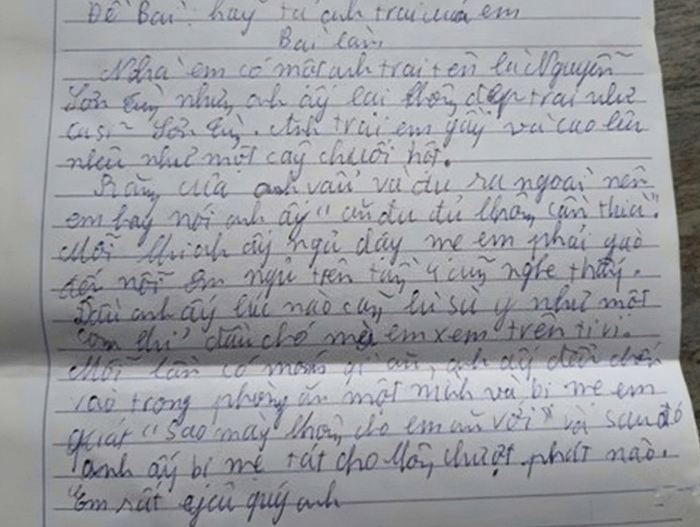 Đề Bài: hãy tả anh trai của em
Bài làm
Nhà em có một anh trai tên là Nguyễn
Sơn Tùng nhưng anh ấy lại không đẹp trai như
ca sĩ Sơn Tùng. Anh trai em gầy và cao lêu
nghêu như một cây chuối hột.
Răng của anh vẩu và dư ra ngoài nên
em hay nói anh ấy "ăn đu đủ không cần thìa".
Mỗi khi anh ấy ngủ dậy mẹ em phải gào
đến nỗi em ngủ trên tầng 4 cũng nghe thấy.
Đầu anh ấy lúc nào cũng lù sù y như một
con khỉ đầu chó mà em xem trên ti vi.
Mỗi lần có món gì ăn, anh ấy đều
vào trong phòng ăn một mình và bị mẹ em
quát "Sao mày không cho em ăn với" và sau đó
anh ấy bị mẹ tát cho không trượt phát nào.
Em rất quý anh